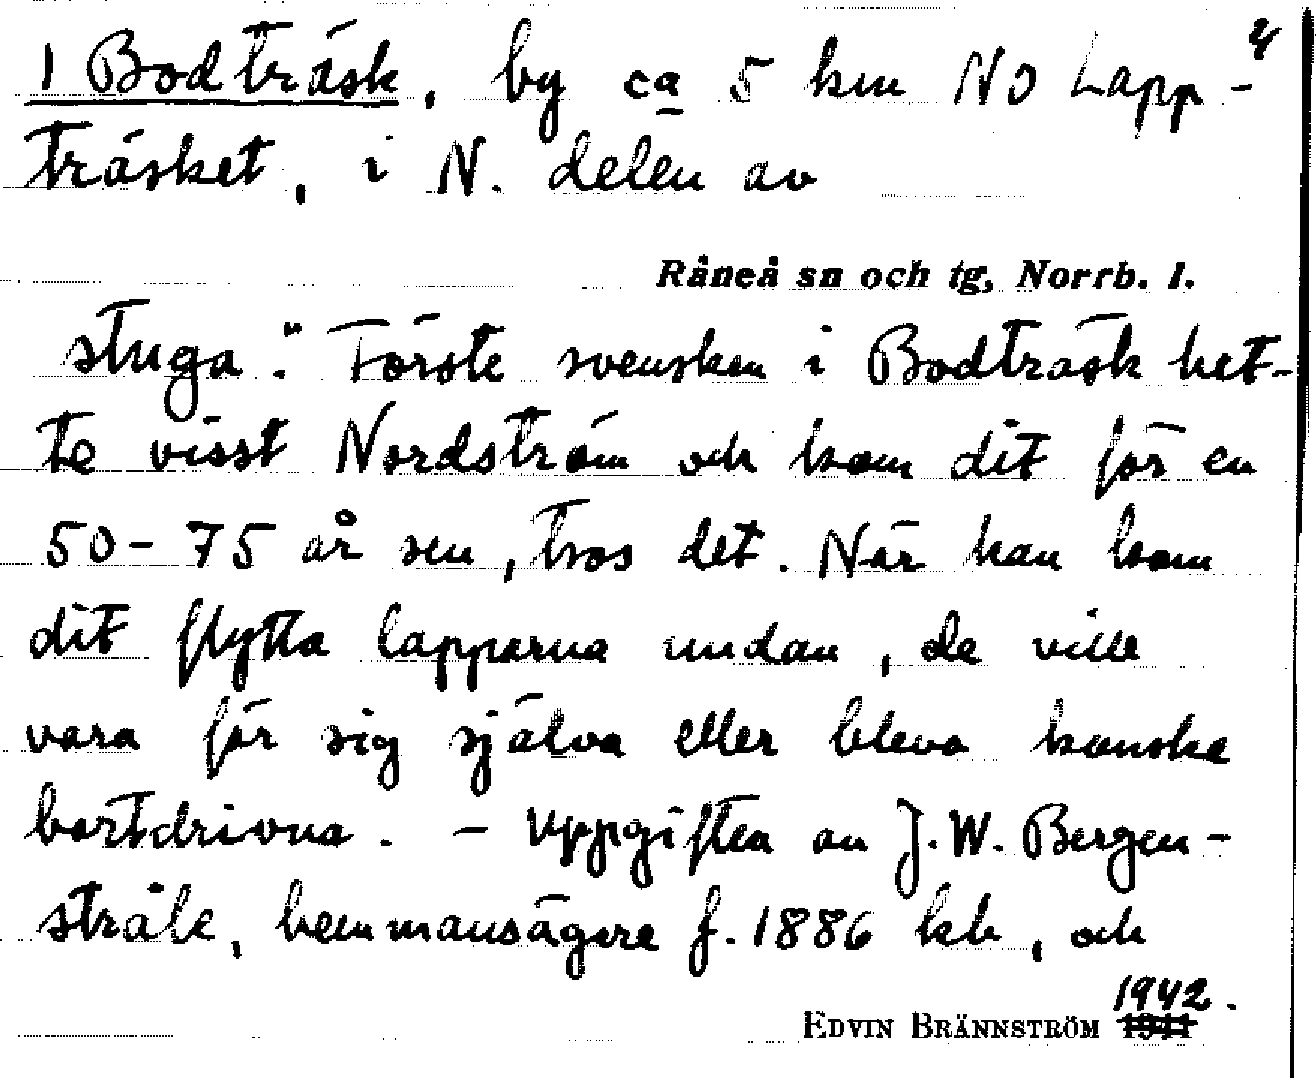 1 Bodträsk, by ca 5 km NO Lapp- 4
träsket, i N. delen av
Råneå sn och tg, Norrb. l.
stuga". Förste svensken i Bodträsk het-
te visst Nordström och kom dit för en
50-75 år sen, tros det. När han kom
dit flytta lapparna undan, de ville
vara för sig själva eller bleva kanske
bortdrivna. – Uppgiften av J. W. Bergen-
stråle, hemmansägare f. 1886 hb, och
1942.
EDVIN BRÄNNSTRÖM 1941